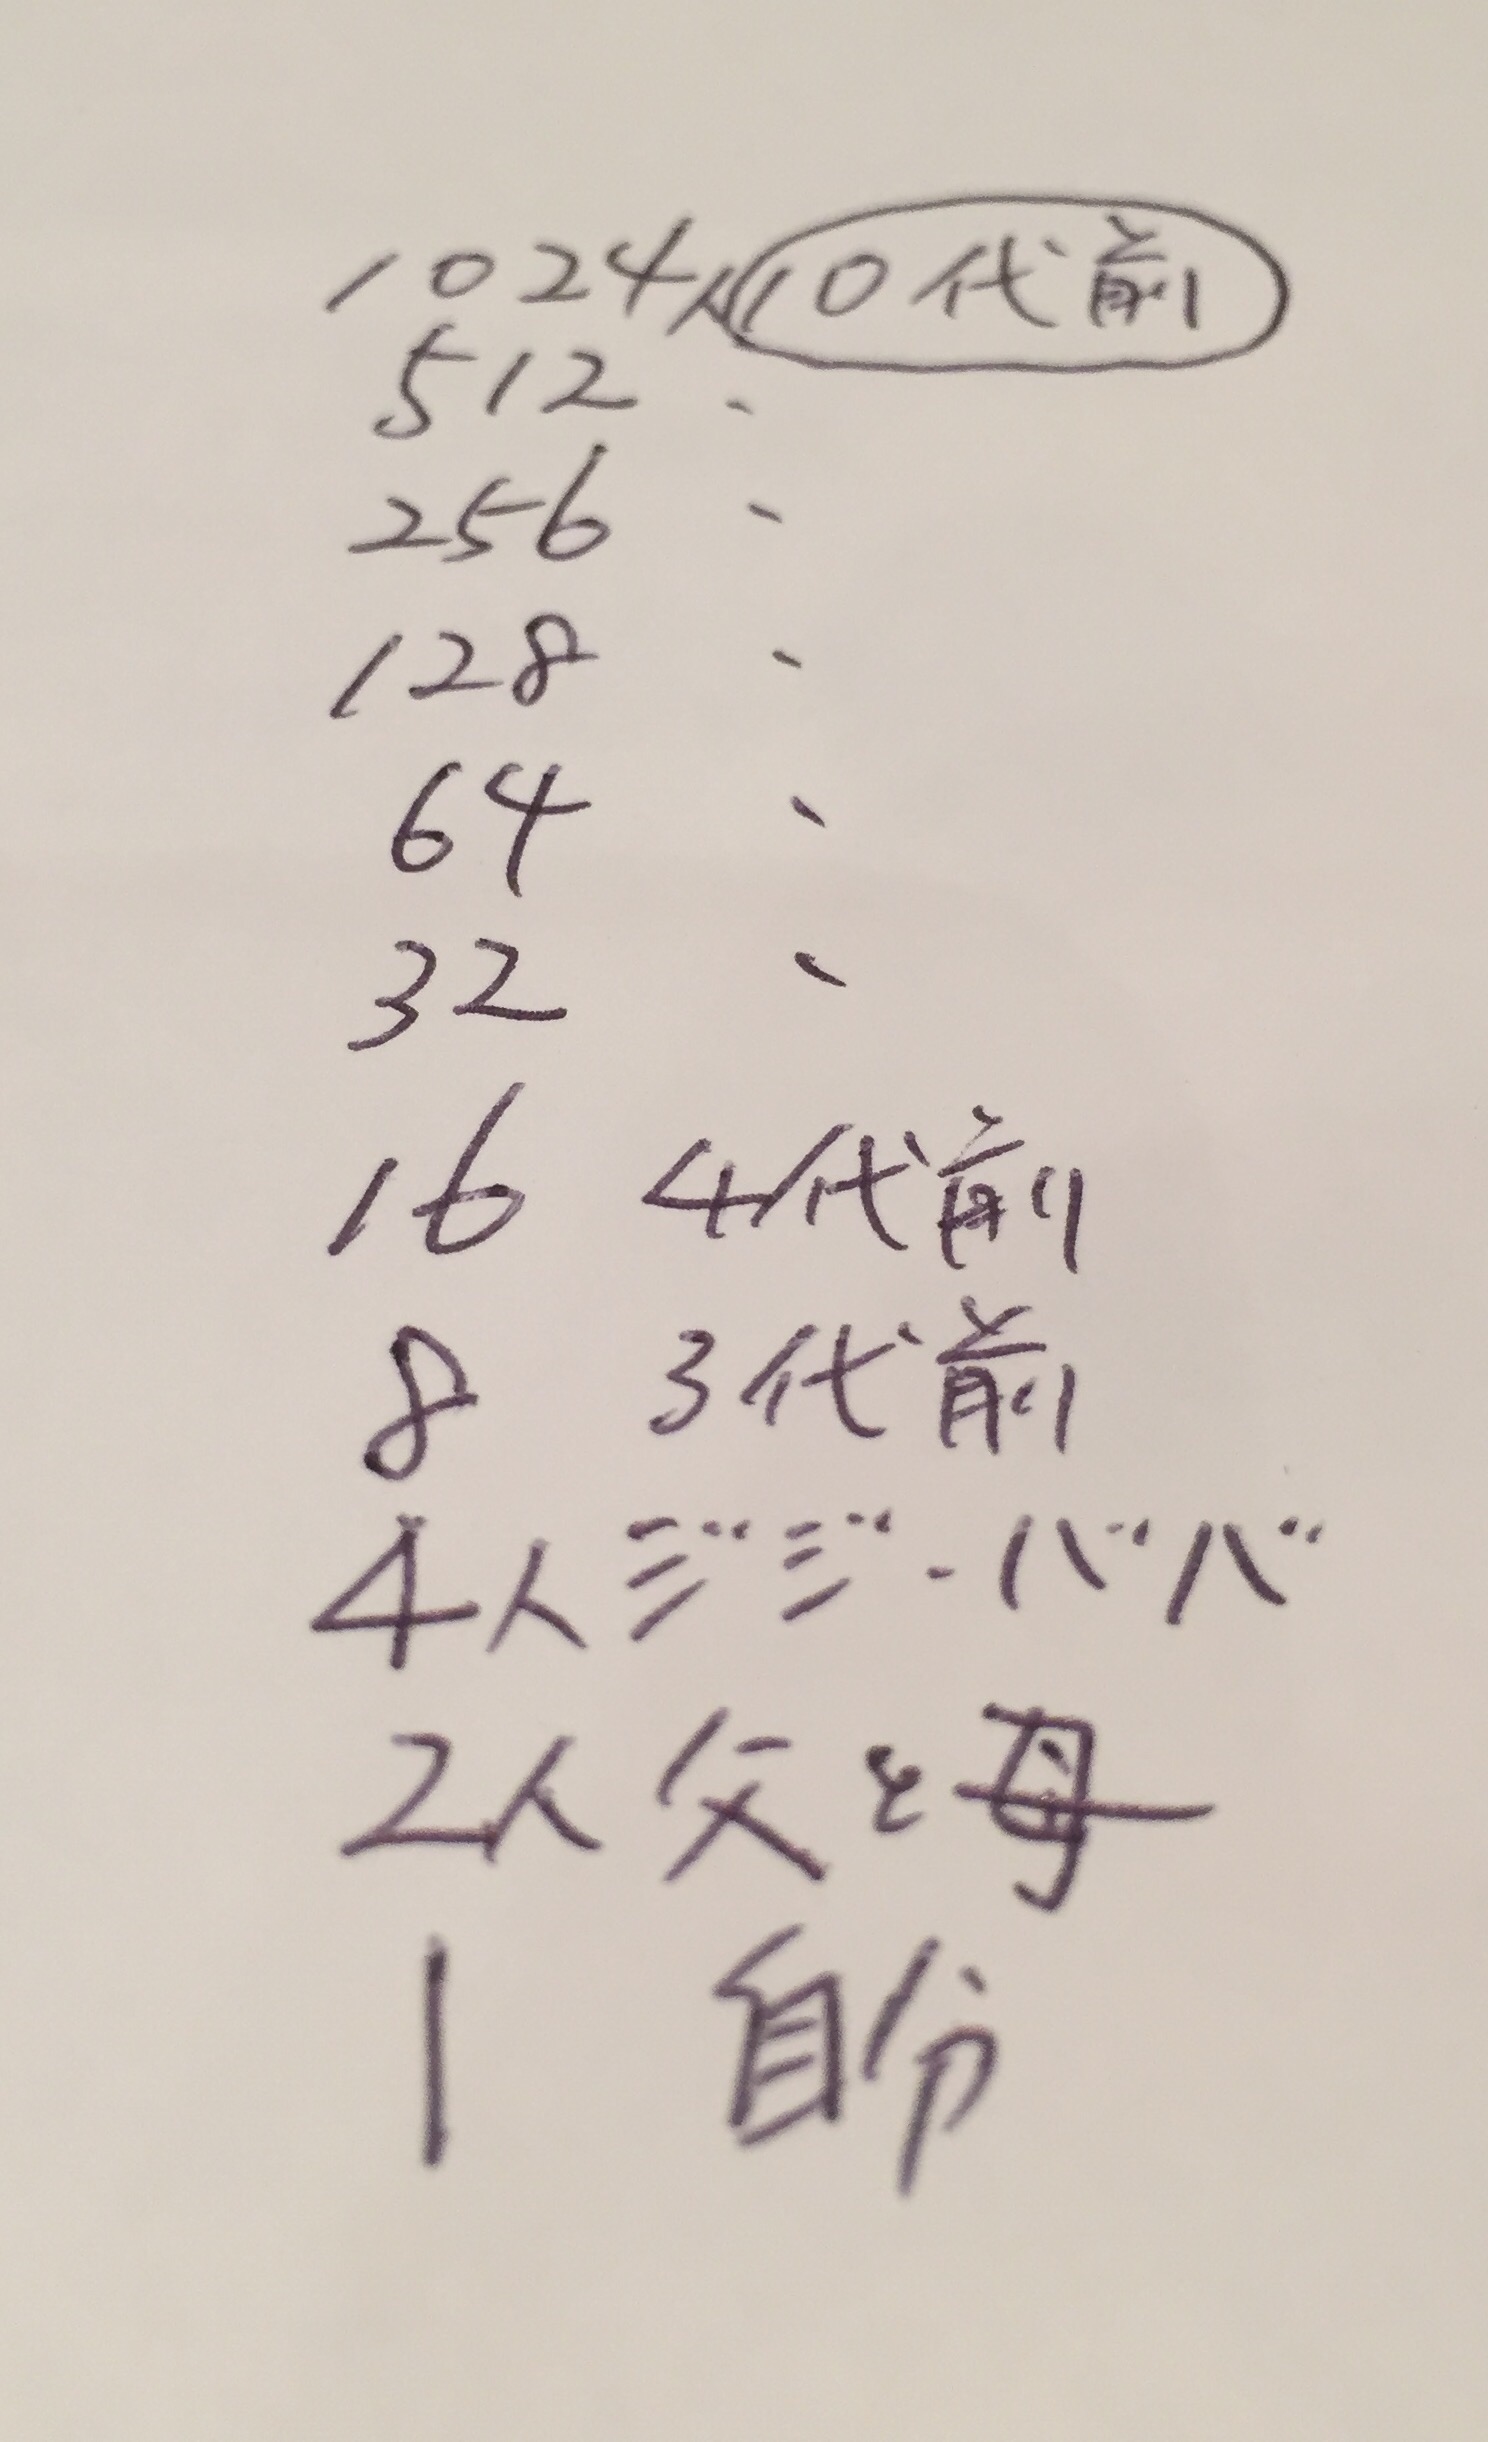 1024人 10代前
512 、
256 、
128 、
64 、
32 、
16 4代前
8 3代前
4人 ジジ・ババ
2人 父と母
1 自分